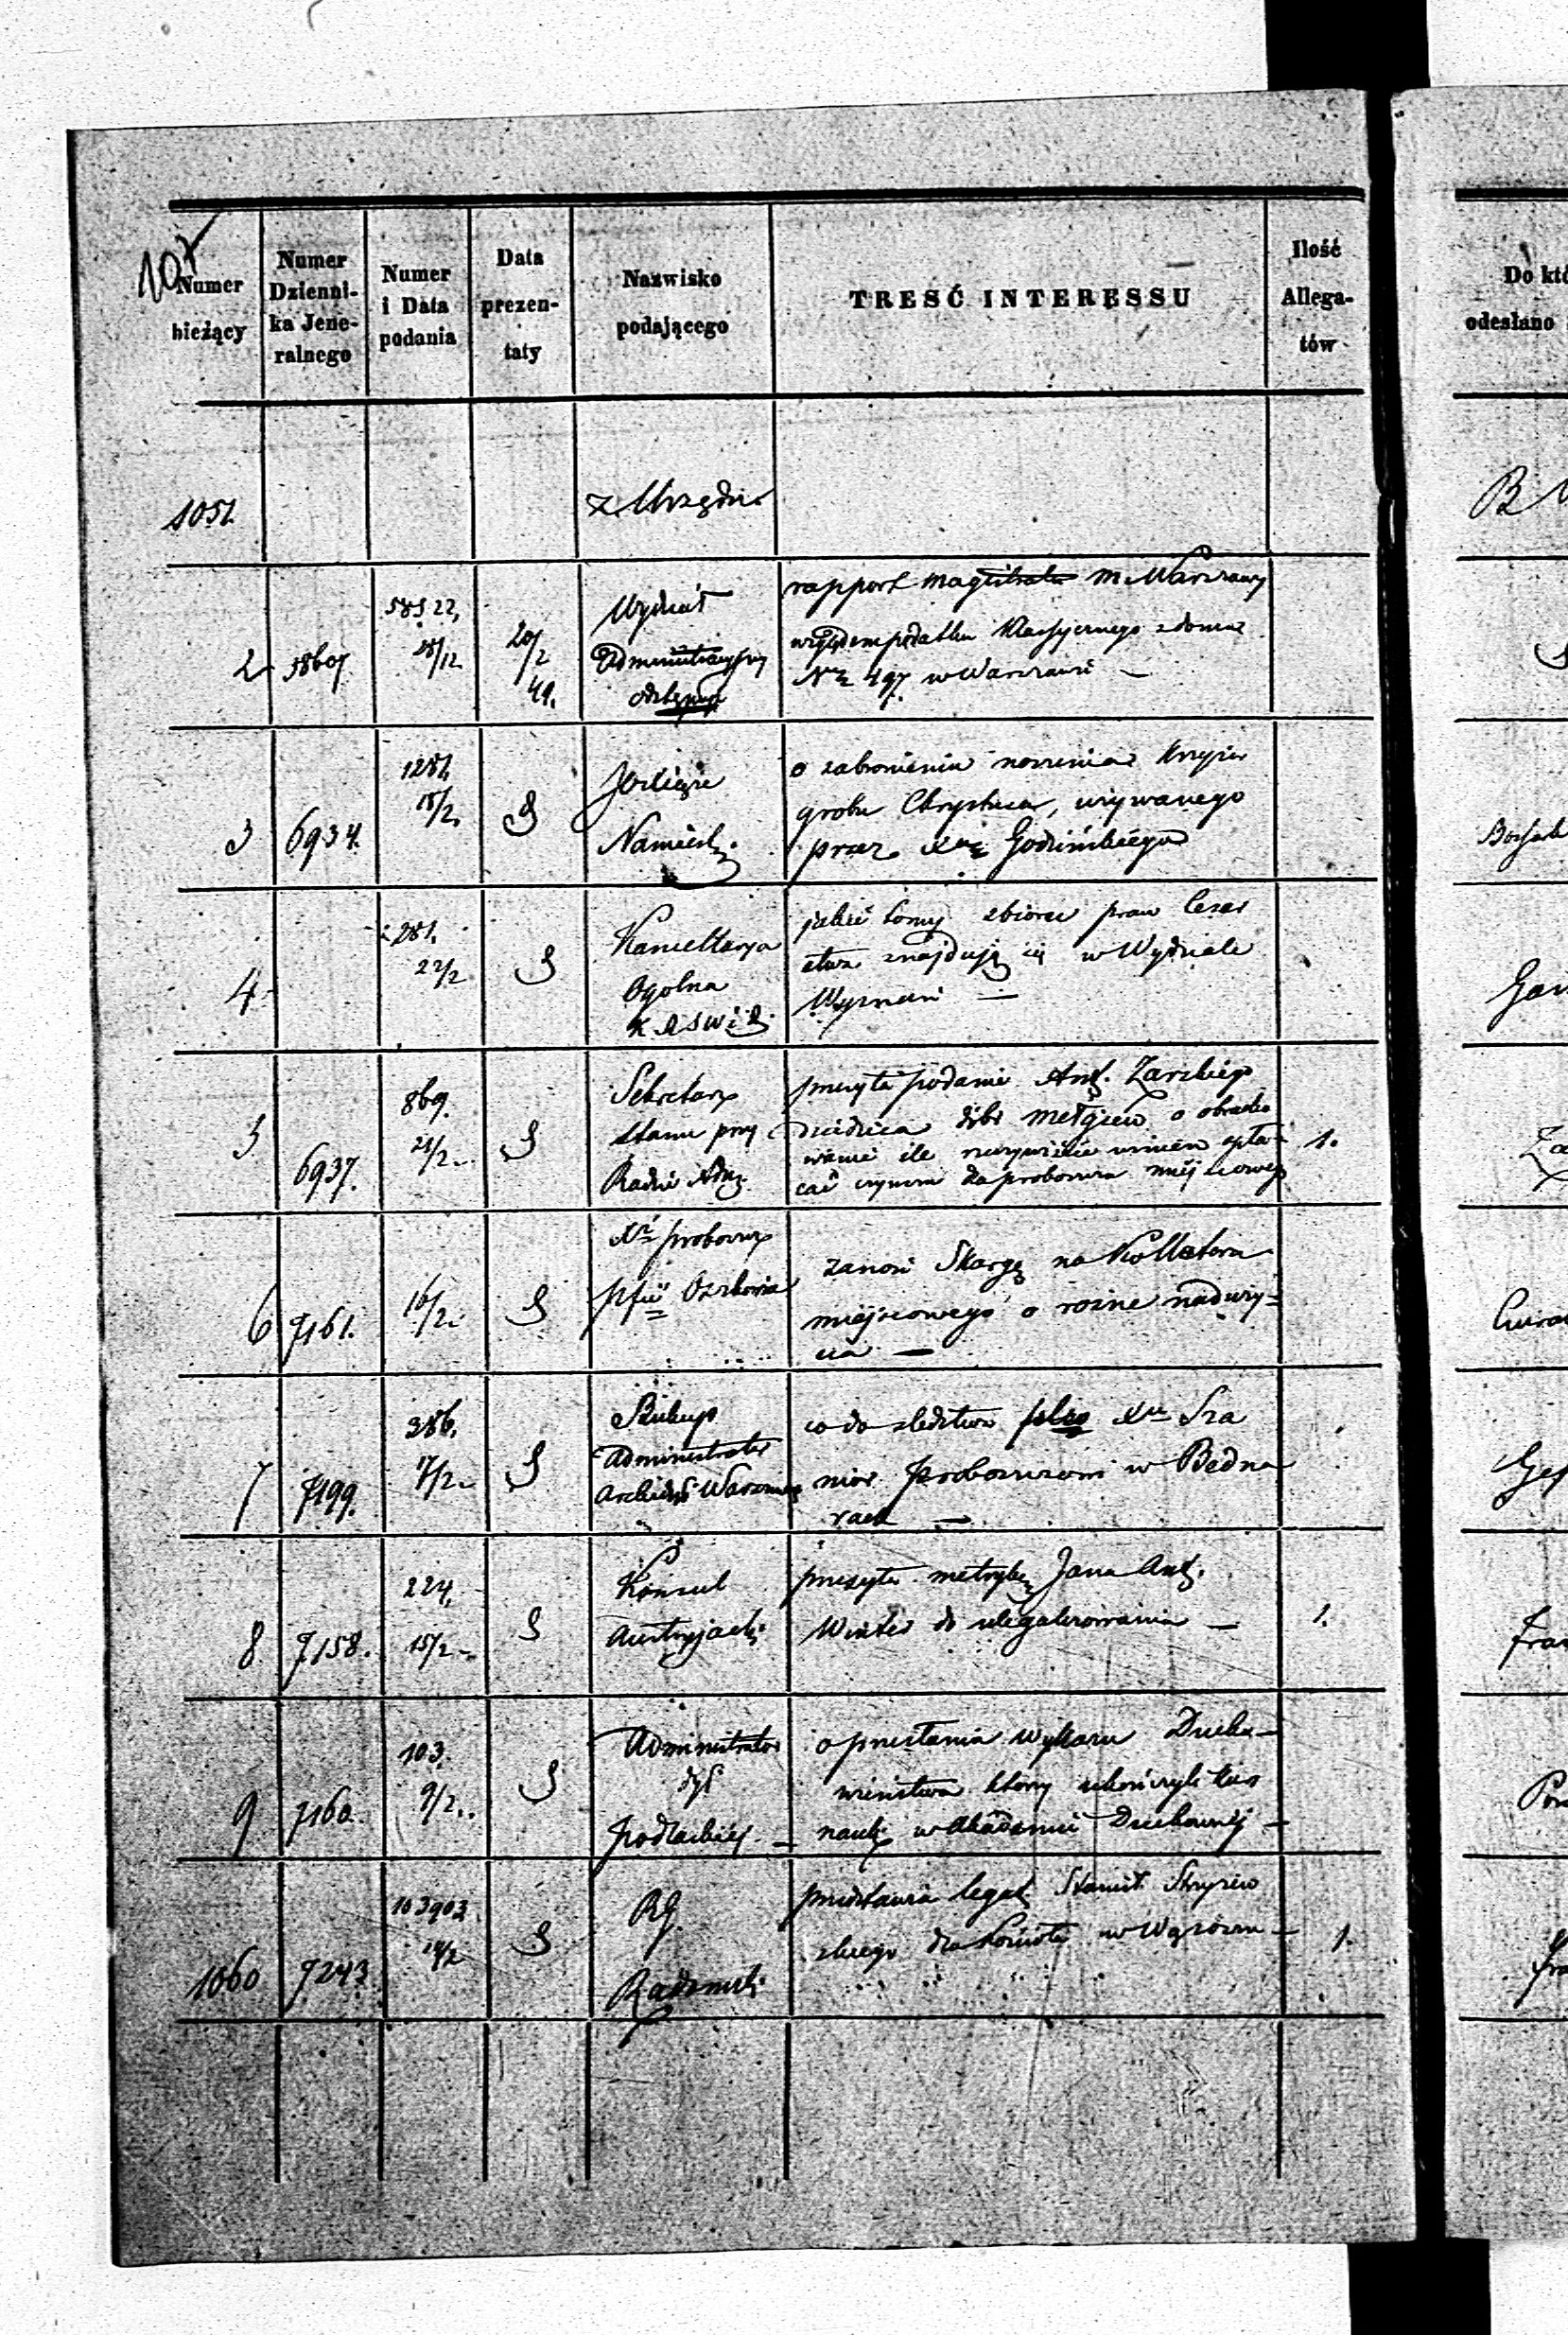 107
Numer bieżący
Numer Dzienni-ka Jene-ralnego
Numer i Data podania
Data prezen-taty
Nazwisko podającego
TREŚĆ INTERESSU
Ilość Allega-tów
Do któ
odesłano
1051.
z Urzędu
B
2
38607
58522.
28/12
20/2 49.
Wydział
Administracyjny
rapport Magistratu M. Warszawy
względem podatku klassycznego z domu
No 497 w Warszawie —
3
6934.
1287.
18/2.
Xdzięcie
Namiest.
o zabronieniu noszenia Krzyża
grobu Chrystusa, używanego
przez Xdza Godzińskiego
4
281.
22/2
Kancellarya
Ogolna
jakie tomy zbioru praw Cesar
stwa znajdują się w Wydziale
Wyznań —
5
6937.
869.
21/2
Sekretarz
Stanu przy
Radzie Adm.
przesyła podanie Ant. Zarskiego
Dziedzica dóbr Mełgiew o
ile rzeczywiście winien opła-
cać czynszu do proboszcza miejscowego
1.
6
7161.
16/2
Xdz proboszcz
pfii Ozorkowa
zanosi Skargę na Kollatora
miejscowego o rożne naduży-
cia —
7
7199.
386.
17/2
Biskup
Administrator
Archid. Warszaws
co do sledztwa plko Xdzu Sza
nior Proboszczowi w Bedna
rach —
8
7158.
224.
15/2
Konsul
Austryjacki
przesyła metrykę Jana Ant.
Winter do ulegalizowania —
1.
9
7160.
103.
9/2
Administrator
dyc
Podlaskiej —
o przesłania wykazu Ducho-
wieństwa który ukończyli kurs
nauk w Akademii Duchownej —
1060
7243
103903
14/2
RG.
Radomski
przedstawia legat Stanisł. Skrzyńs
kiego dla Kościoła w —
1.